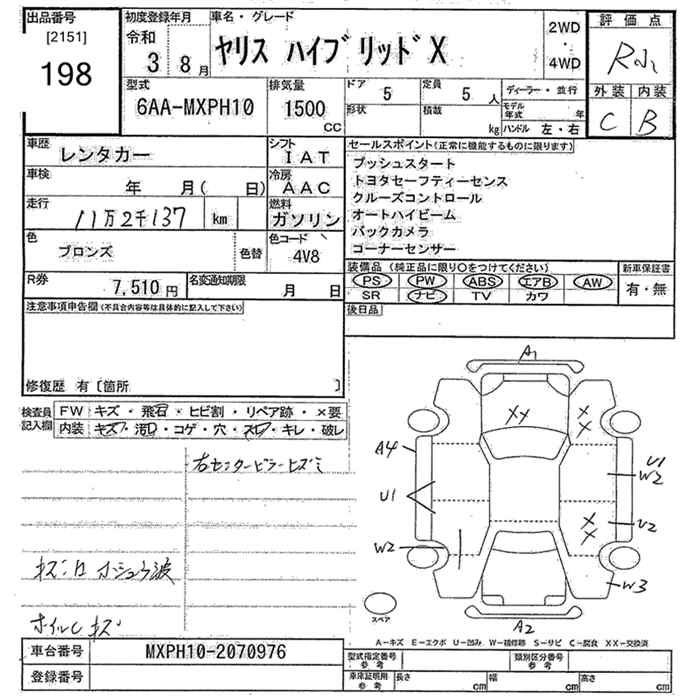 出品番号
[2151]
198
初度登録年月
令和
3 8月
車名・グレード
ヤリス ハイブリッド X
2WD
・
4WD
評価点
外装 内装
C B
型式
6AA-MXPH10
排気量
1500
CC
ドア 5
定員 5 人
ディーラー・並行
形状
積載
kg
モデル年式 年
ハンドル 左・右
車歴
レンタカー
シフト
IAT
車検
年 月( 日)
冷房
AAC
走行
11万2千137 km
燃料
ガソリン
色
ブロンズ
色替
色コード
4V8
R券
7,510円
名変通知期限
月 日
セールスポイント(正常に機能するものに限ります)
プッシュスタート
トヨタセーフティーセンス
クルーズコントロール
オートハイビーム
バックカメラ
コーナーセンサー
装備品(純正品に限り○をつけてください)
PS PW ABS エアB AW
SR ナビ TV カワ
新車保証書
有・無
後日品
注意事項申告欄(不具合内容等は具体的に記入して下さい)
修復歴 有〔箇所 〕
検査員記入欄
FW キズ・飛石・ヒビ割・リペア跡・×要
内装 キズ・汚れ・コゲ・穴・スレ・キレ・破レ
右センターピラーヒズミ
ホイルC キズ
A1
XX
X
X
A4
U1
U1
W2
X
X
U2
W2
W3
A2
スペア
A-キズ E-エクボ U-凹み W-補修跡 S-サビ C-腐食 XX-交換済
車台番号
MXPH10-2070976
登録番号
型式指定番号
参考
類別区分番号
参考
車庫証明用
参考
長さ cm
幅 cm
高さ cm